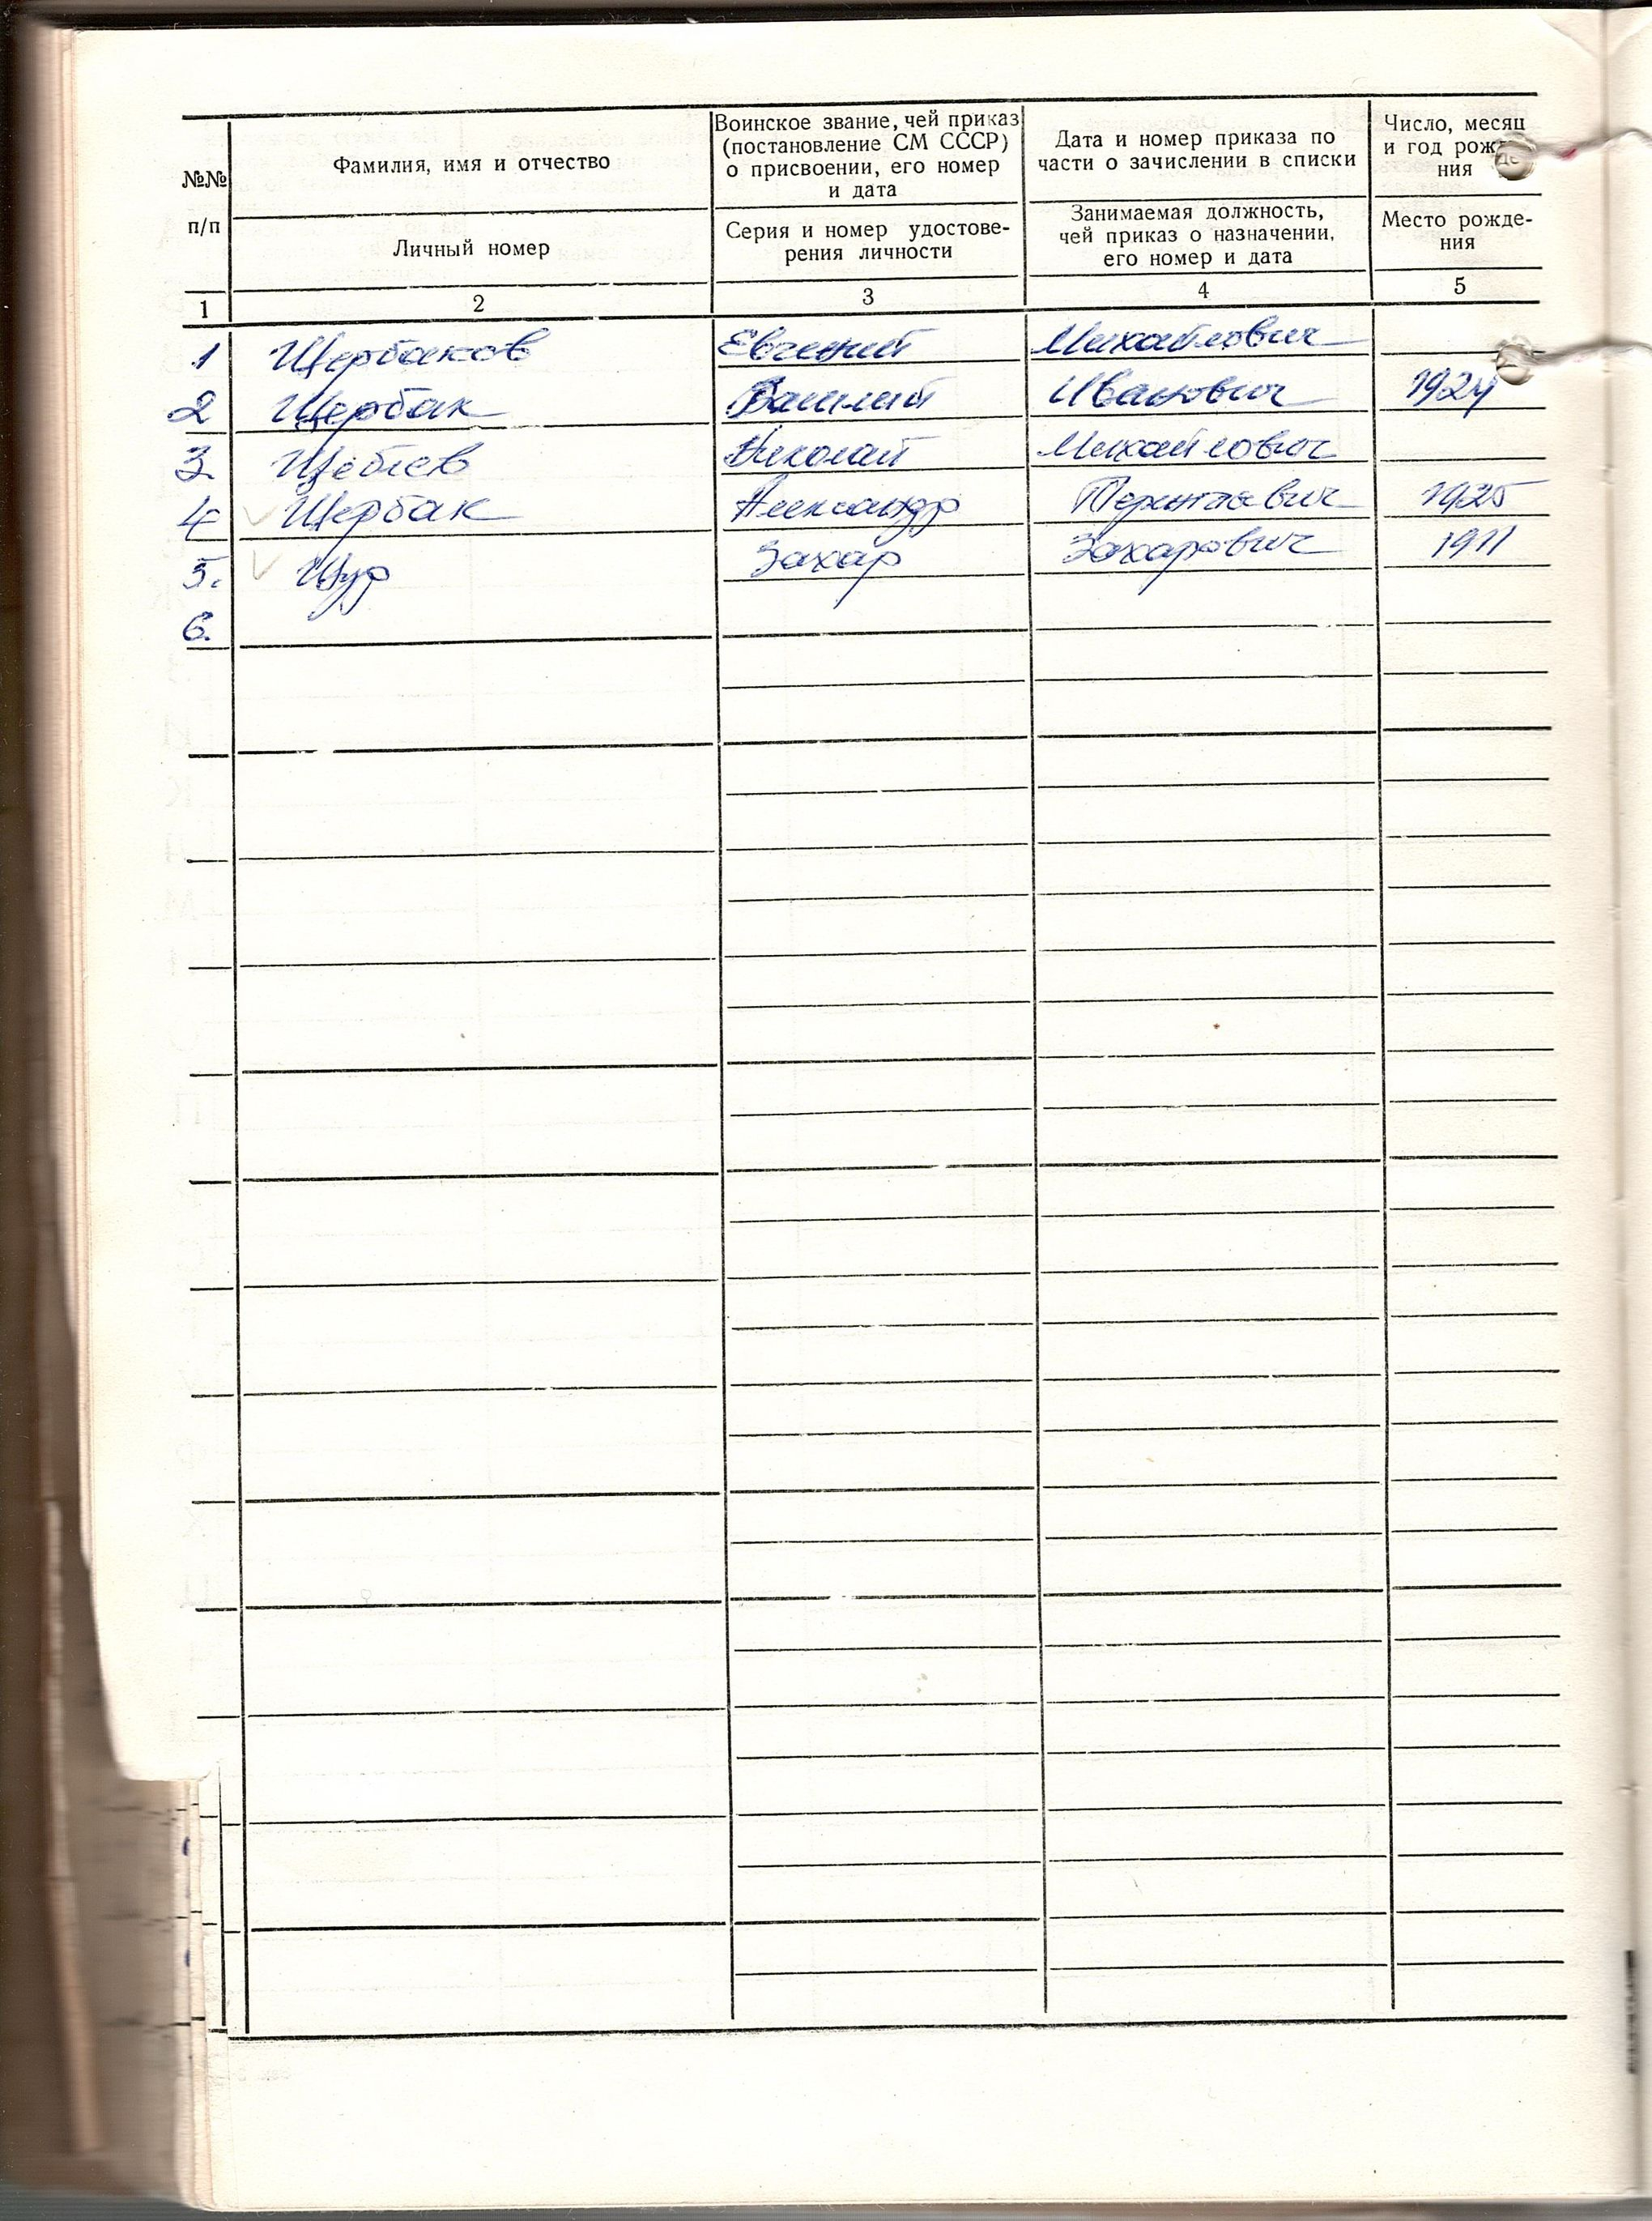 №№ п/п
Фамилия, имя и отчество
Личный номер
Воинское звание, чей приказ
(постановление СМ СССР)
о присвоении, его номер
и дата
Серия и номер удостове-
рения личности
Дата и номер приказа по
части о зачислении в списки
Занимаемая должность,
чей приказ о назначении,
его номер и дата
Число, месяц
и год рожде-
ния
Место рожде-
ния
1 2 3 4 5
1 Щербаков Евгений Михайлович
2 Щербак Василий Иванович 1924
3. Николай Михайлович
4 Щербак Александр 1925
5. Щур Захар Захарович 1911
6.